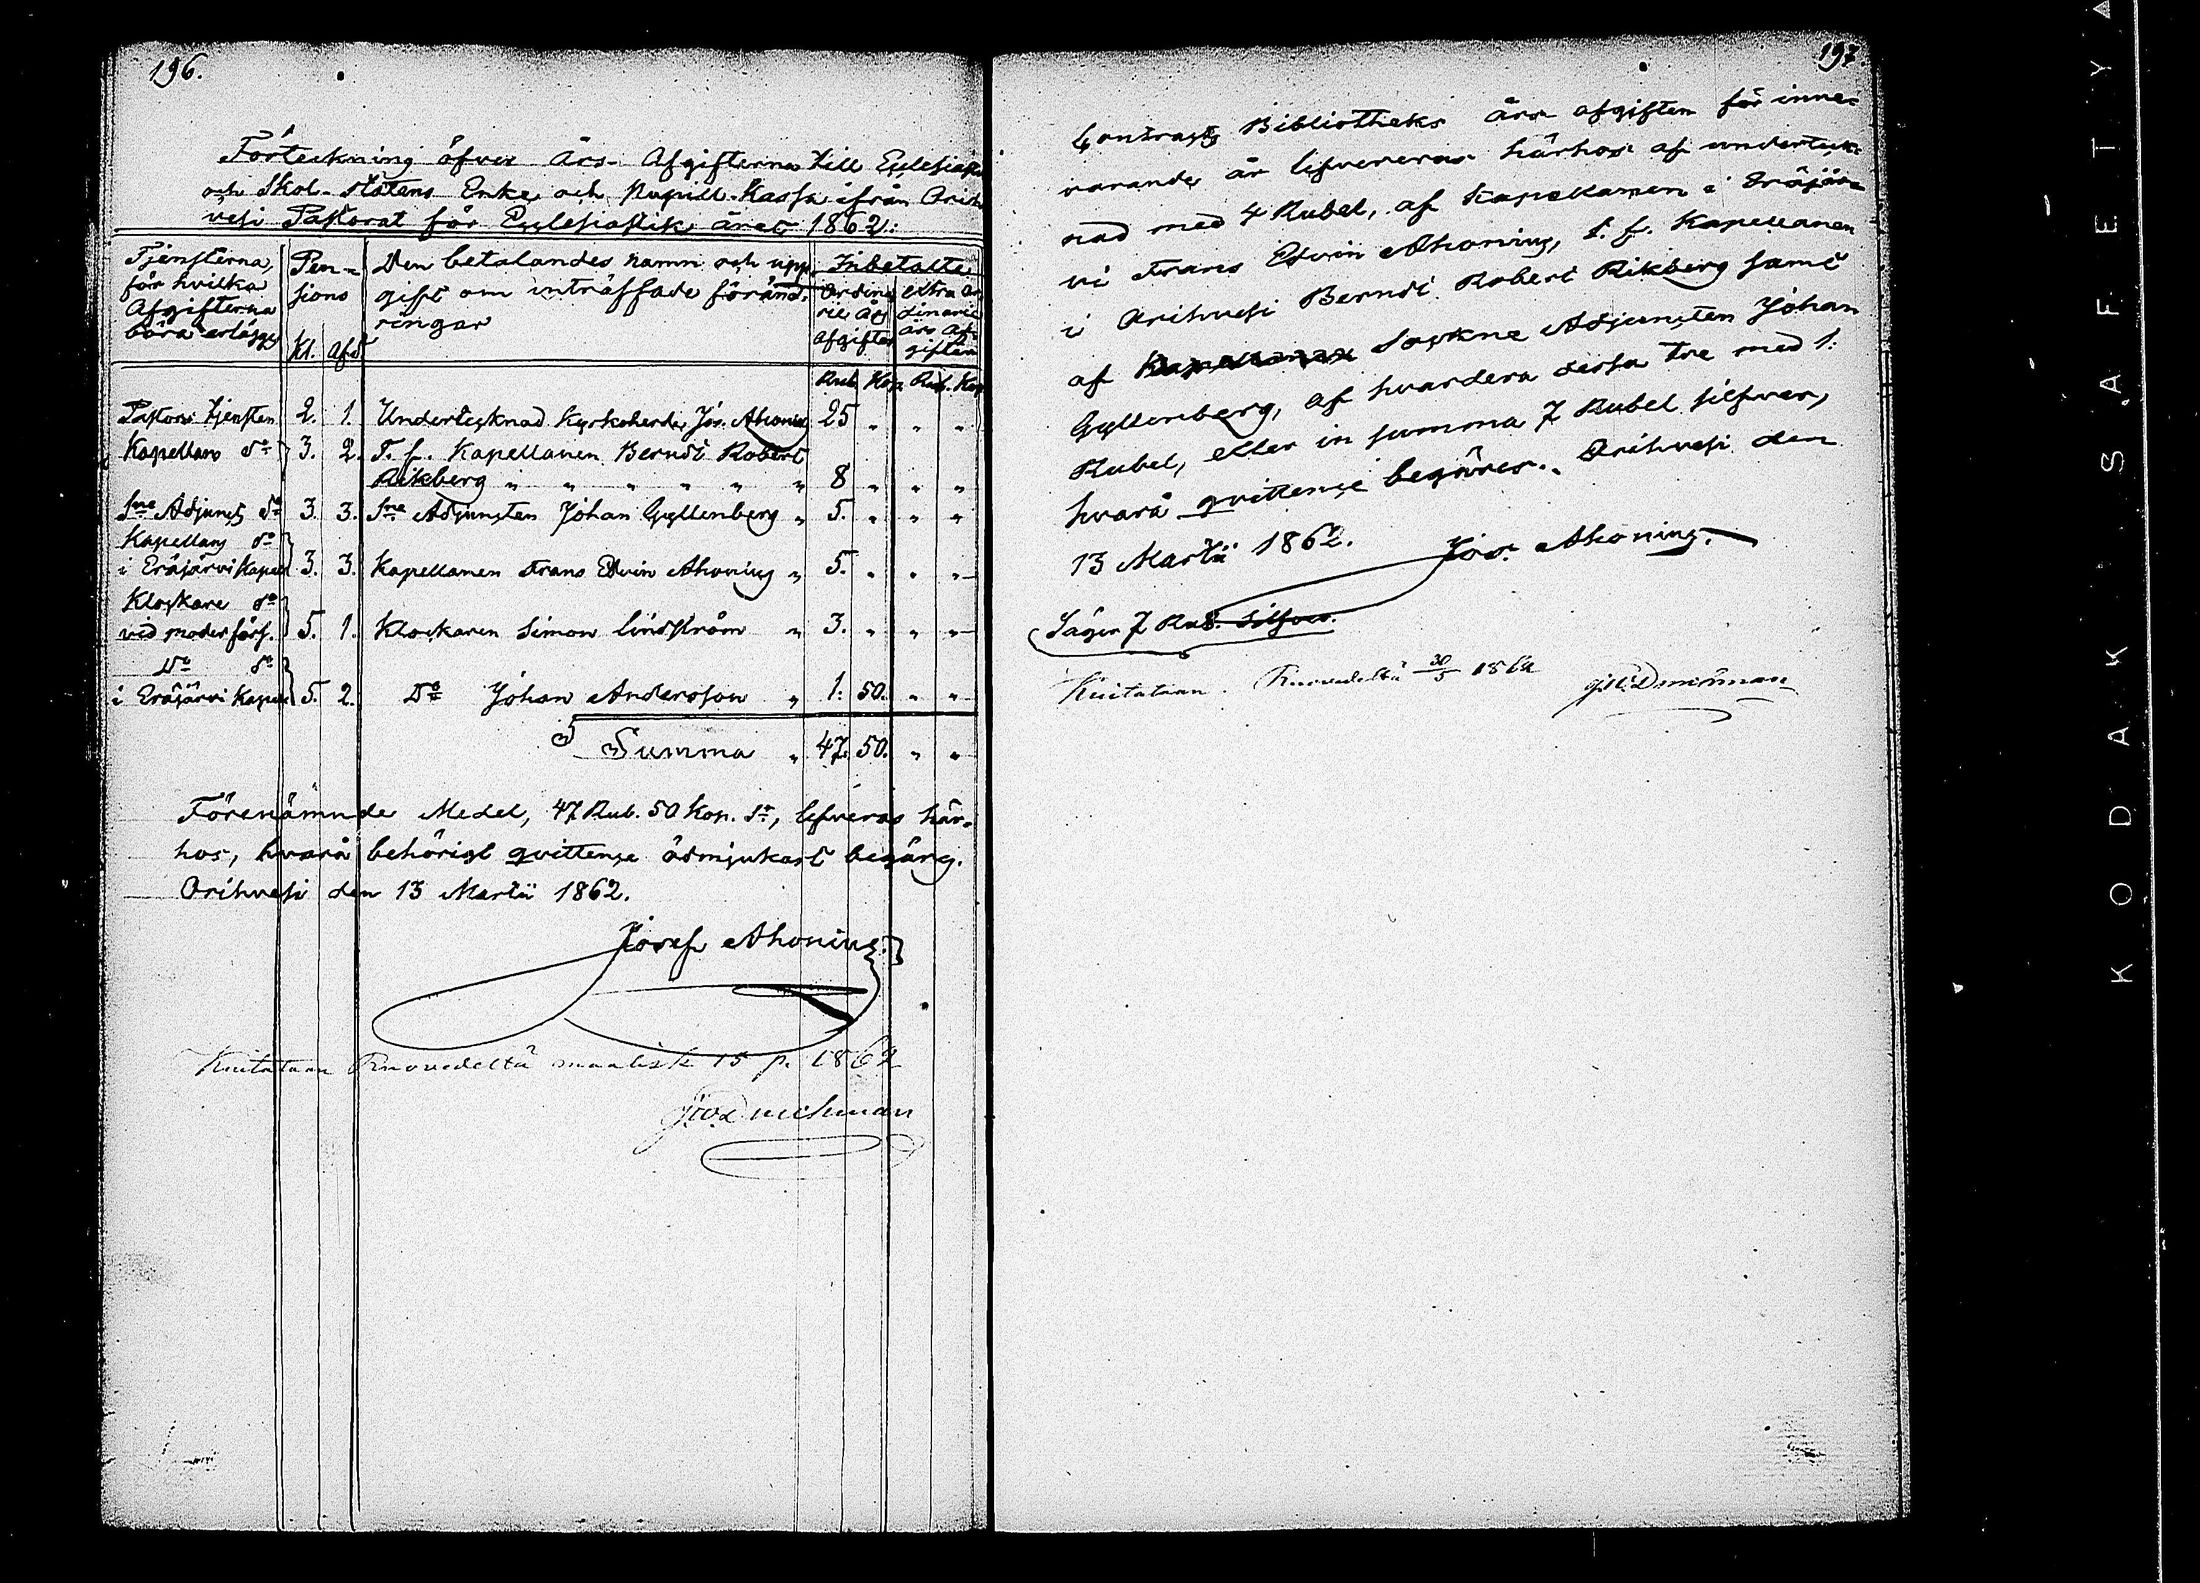 196.
Förteckning öfver Års-Afgifterna till Ecclesiastik
och Skol-Statens Enke och Pupill-Kassa ifrån Orih-
vesi Pastorat för Ecclesiastik året 1862:
Tjensterna, för hvilka Afgifterna böra erlägges | Pensions Kl. afd | Den betalandes namn och uppgift om inträffade förändringar | Inbetalte Ordinarie Års afgifter | extra ordinarie års afgifter
Rub. Kop. Rub. Kop.
Pastors tjensten 2. 1. Undertecknad Kyrkoherde, Jos. Ahoning 25 " " "
Kapellans do 3. 2. T. f. Kapellanen Berndt Robert
Rikberg " " " " " " 8 " " "
Sne Adjuncts do 3. 3. Sne Adjuncten Johan Gyllenberg " 5. " " "
Kapellans do
i Eräjärvi Kapell 3. 3. Kapellanen Frans Edvin Ahoning " 5. " " "
Klockare do
ved moderförs. 5. 1. Klockaren Simon Lindström " 3. " " "
Do do
i Eräjärvi Kapell 5. 2. Do Johan Andersson " 1. 50. " "
Summa " 47. 50. " "
Förenämnde Medel, 47 Rub. 50 Kop. Sr, lefveras här-
hos, hvarå behörigt qvittence ödmjukast begäres.
Orihvesi den 13 Martii 1862.
Josef Ahoning.
Kuitataan Ruovedeltä maalisk 15 p. 1862
197.
Contracts Bibliotheks års afgiften för inne-
varande år lefvereras härhos af underteck-
nad med 4 Rubel, af Kapellanen i Eräjär-
vi Frans Edvin Ahoning, t. f. Kapellanen
i Orihvesi Berndt Robert Rikberg samt
af Sockne Adjuncten Johan
Gyllenberg, af hvardera dessa tre med 1:
Rubel, eller in summa 7 Rubel silfver,
hvarå qvittence begäres. Orihvesi den
13 Martii 1862. Jos. Ahoning.
Säger 7 Rub. Silfver.
Kuitataan. Ruovedeltä 30/3 1862
KODAK SAFETY